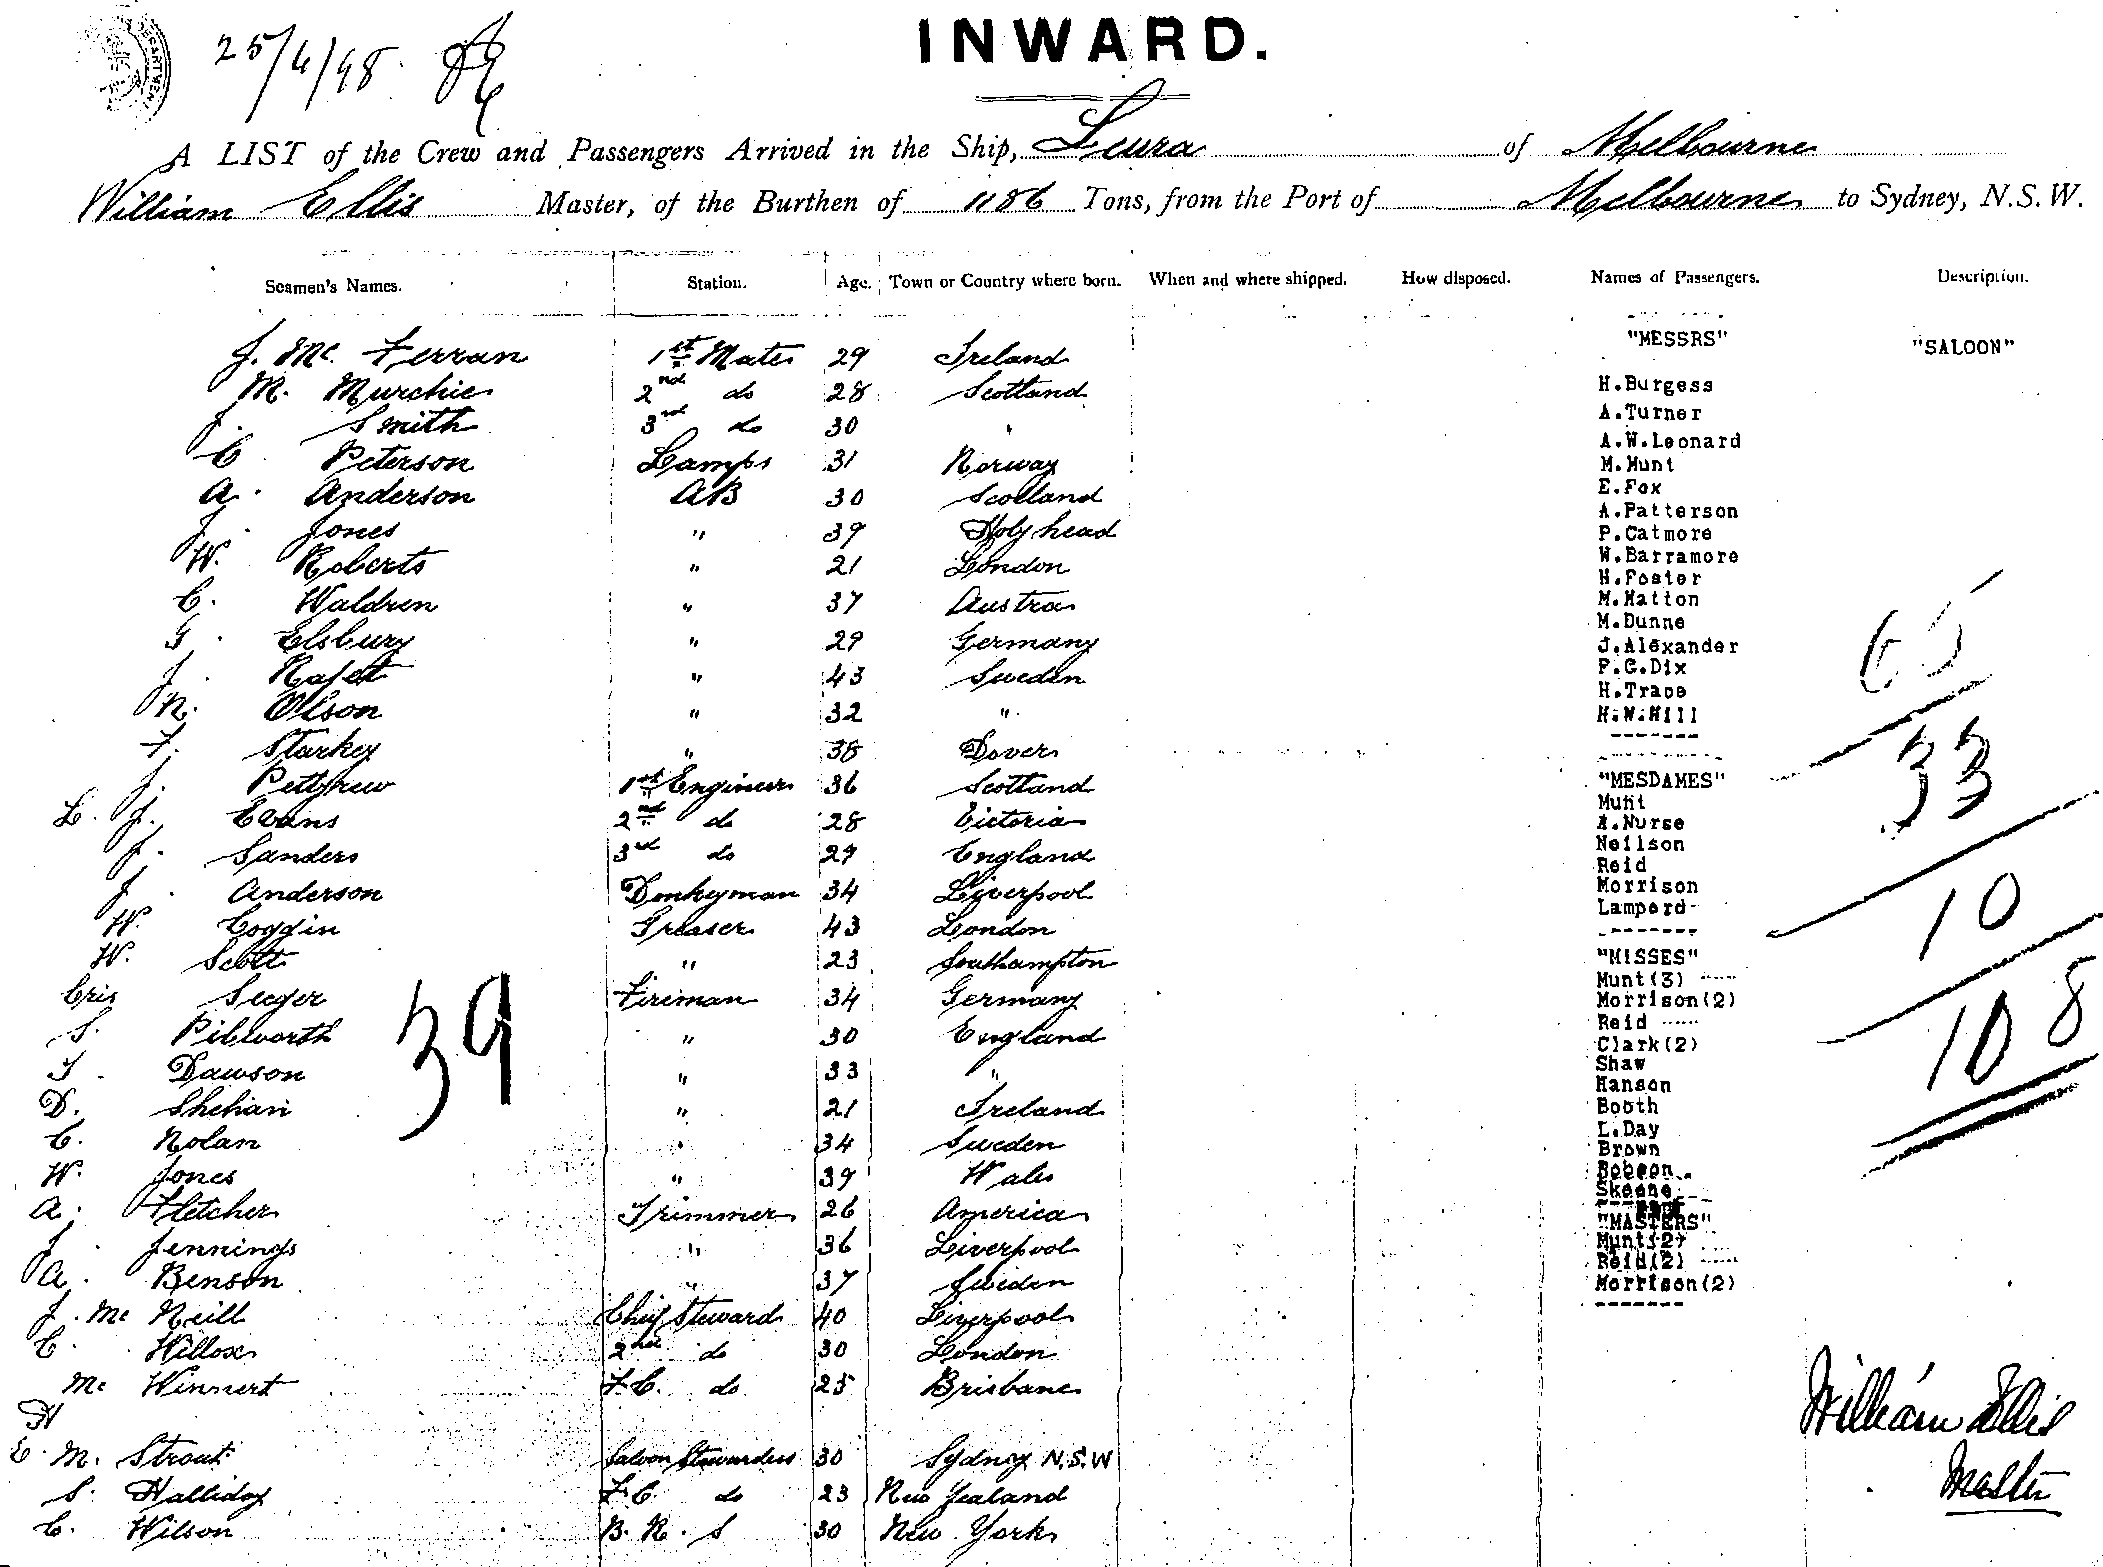 25/4/98.
INWARD.
A LIST of the Crew and Passengers Arrived in the Ship, Leura of Melbourne
William Ellis Master, of the Burthen of 1186 Tons, from the Port of Melbourne to Sydney, N.S.W.
Seamen's Names. Station. Age. Town or Country where born. When and where shipped. How disposed. Names of Passengers. Description.
"MESSRS" "SALOON"
J. Mc. Ferran 1st Mate 29 Ireland
M. Murchie 2nd do 28 Scotland H.Burgess
J. Smith 3rd do 30 " A.Turner
C Peterson Lamps 31 Norway A.W.Leonard
M.Munt
A. Anderson AB 30 Scotland E.Fox
J. Jones " 39 Holyhead A.Patterson
P.Catmore
W. Roberts " 21 London W.Barramore
H.Foster
C. Waldren " 37 Austra M.Hatton
M.Dunne
G. Elsbury " 29 Germany J.Alexander
J. " 43 Sweden F.G.Dix
H.Trace
N. Olson " 32 " H.W.Hill
F. Starkey " 38 Dover
J. Pettgrew 1st Engineer 36 Scotland "MESDAMES"
Munt
L. J. Evans 2nd do 28 Victoria A.Nurse
Neilson
J. Sanders 3rd do 29 England Reid
J. Anderson Donkeyman 34 Liverpool Morrison
Lamperd
W. Coggin Greaser 43 London
W. Scott " 23 Southampton "MISSES"
Munt(3)
Cris Seeger Fireman 34 Germany Morrison(2)
Reid
S. Pibworth " 30 England Clark(2)
T. Dawson " 33 " Shaw
Hanson
D. Shehan " 21 Ireland Booth
L.Day
C. Nolan " 34 Sweden Brown
W. Jones " 39 Wales Robson
Skeene
A. Fletcher Trimmer 26 America "MASTERS"
J. Jennings " 36 Liverpool Munt(2)
Reid(2)
A. Benson " 37 Sweden Morrison(2)
J. Mc Neill Chief Steward 40 Liverpool
C. Willox 2nd do 30 London
Mc Winnert F.C. do 25 Brisbane
H
E. M. Strout Saloon Stewardess 30 Sydney N.S.W
S. Halliday F.C. do 23 New Zealand
C. Wilson B.R.S 30 New York
39
65
33
10
108
William Ellis
Master